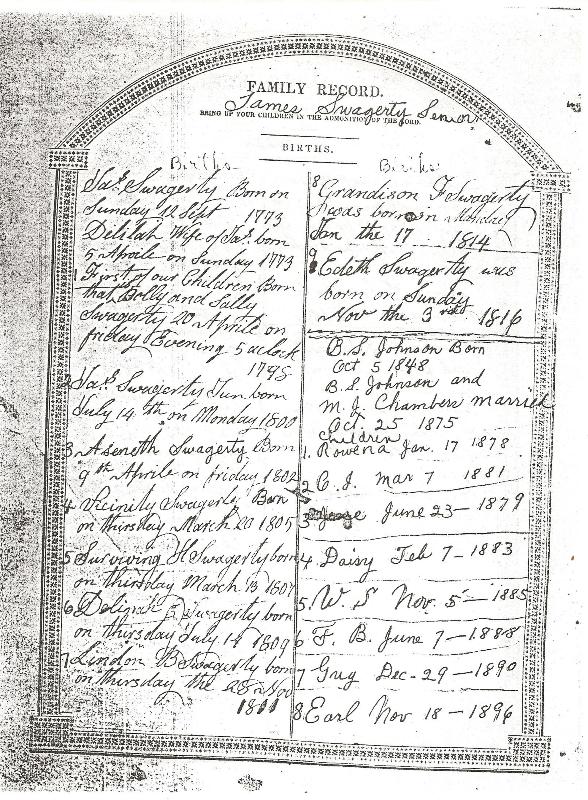 FAMILY RECORD.
James Swagerty Senior
BRING UP YOUR CHILDREN IN THE ADMONITION OF THE LORD.
BIRTHS.
Births
Jas. Swagerty Born on
Sunday 12 Sept 1773
Delilah Wife of Jas. born
5 Aprile on Sunday 1773
1 First of our Children Born
that Polly and Sally
Swagerty 20 Aprile on
friday Evening 5 aclock
1798
2 Jas. Swagerty Jun. born
July 14th on Monday 1800
3 Aseneth Swagerty Born
9th Aprile on friday 1802
4 Vicinity Swagerty Born
on thursday March 20 1805
5 Surviving H Swagerty born
on thursday March 13 1807
6 Swagerty born
on thursday July 14 1809
7 Lindon B Swagerty born
on thursday the 28 Nov
1811
Births
8 Grandison F Swagerty
was born on
Jan the 17 1814
9 Edeth Swagertty was
born on Sunday
Nov the 3rd 1816
B. S. Johnson Born
Oct 5 1848
B. S. Johnson and
M. J. Chambers married
Oct. 25 1875
Children
1. Rowena Jan. 17 1878
2 C. J. Mar 7 1881
3 June 23 - 1879
4. Daisy Feb 7 - 1883
5. W. S Nov. 5 - 1885
6 F. B. June 7 - 1888
7 Greg Dec - 29 - 1890
8 Earl Nov 18 - 1896